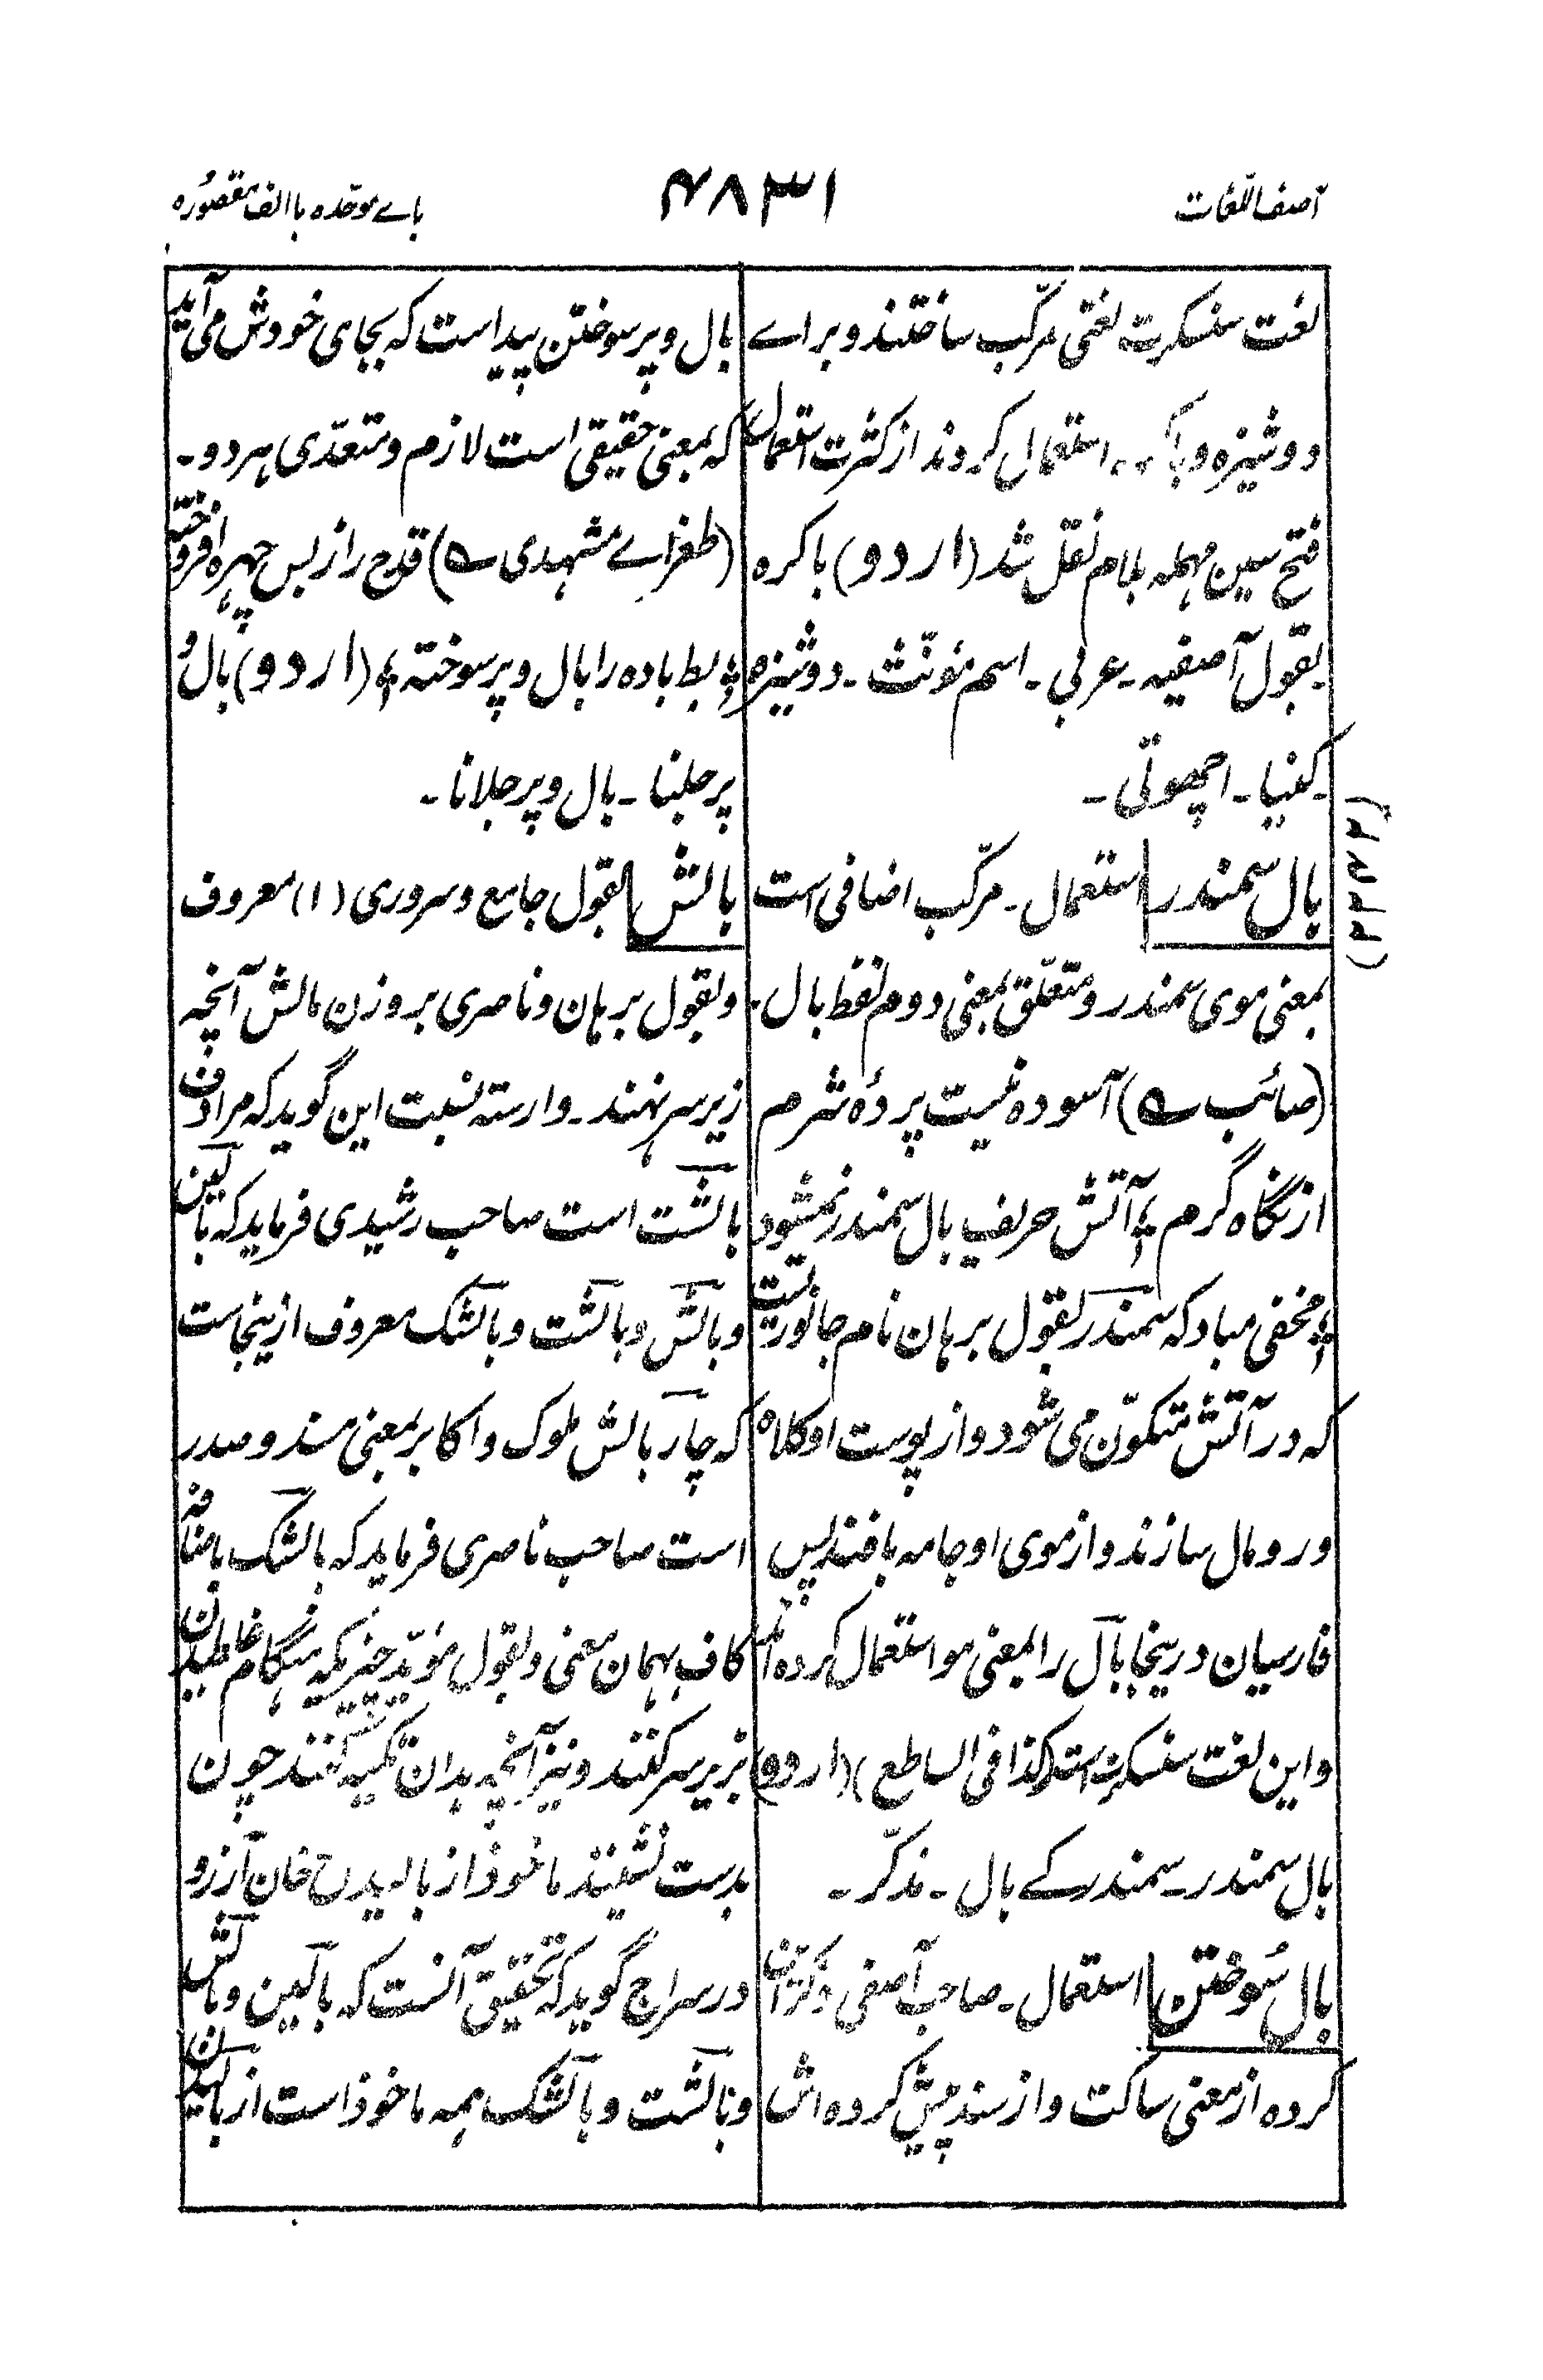 آصف اللّغات
۴۸۳۱
باے موحّدہ با الف مقصُورہ
لغت سنسکرت لغتی مرکّب ساختند و براے
دوشیزہ و استعمال کردند از کثرت استعمال
فتح سین مہملہ بلام نقل شد (اردو) باکرہ
بقول آصفیہ۔ عربی۔ اسم مؤنّث۔ دوشیزہ
کنیا۔ اچھوتی۔
بال سمندر استعمال۔ مرکّب اضافی است
بمعنی موی سمندر و متعلّق بمعنی دوم لفظ بال۔
(صائب ؎) آسودہ نیست پردۂ شرم
از نگاہ گرم ؛ آتش حریف بال سمندر نمیشود
؛ مخفی مباد کہ سمندر بقول برہان نام جانوریست
کہ در آتش متکوّن می شود و از پوست او کلاہ
و رومال سازند و از موی او جامہ بافند پس
فارسیان درینجا بال را بمعنی مو استعمال کردہ اند
و این لغت سنسکرت است (کذا فی الساطع) (اردو)
بال سمندر۔ سمندر کے بال۔ مذکّر۔
بال سُوختن استعمال۔ صاحب آصفی ذکر این
کردہ از معنی ساکت و از سند پیش کردہ اش
بال و پر سوختن پیداست کہ بجای خودش می آید
کہ بمعنی حقیقی است لازم و متعدّی ہر دو۔
(طغراے مشہدی ؎) قدح را ز بس چہرہ افروختہ
؛ بط بادہ را بال و پر سوختہ ؛ (اردو) بال و
پر جلنا۔ بال و پر جلانا۔
بالش بقول جامع و سروری (۱) معروف
و بقول برہان و ناصری بر وزن مالش آنچہ
زیر سر نہند۔ وارستہ نسبت این گوید کہ مرادف
بالشت است صاحب رشیدی فرماید کہ بالین
و بالش و بالشت و بالشک معروف ازینجاست
کہ چار بالش ملوک و اکابر بمعنی مسند و صدر
است صاحب ناصری فرماید کہ بالشک باضافہ
کاف بہمان معنی و بقول مؤیّد چیزیکہ ہنگام غلطیدن
بزیر سر کنند و نیز آنچہ بدان تکیہ کنند چون
بدست نشینند ماخوذ از بالیدن خان آرزو
در سراج گوید کہ تحقیق آنست کہ بالین و بالش
و بالشت و بالشک ہمہ ماخوذ است از بالیدن